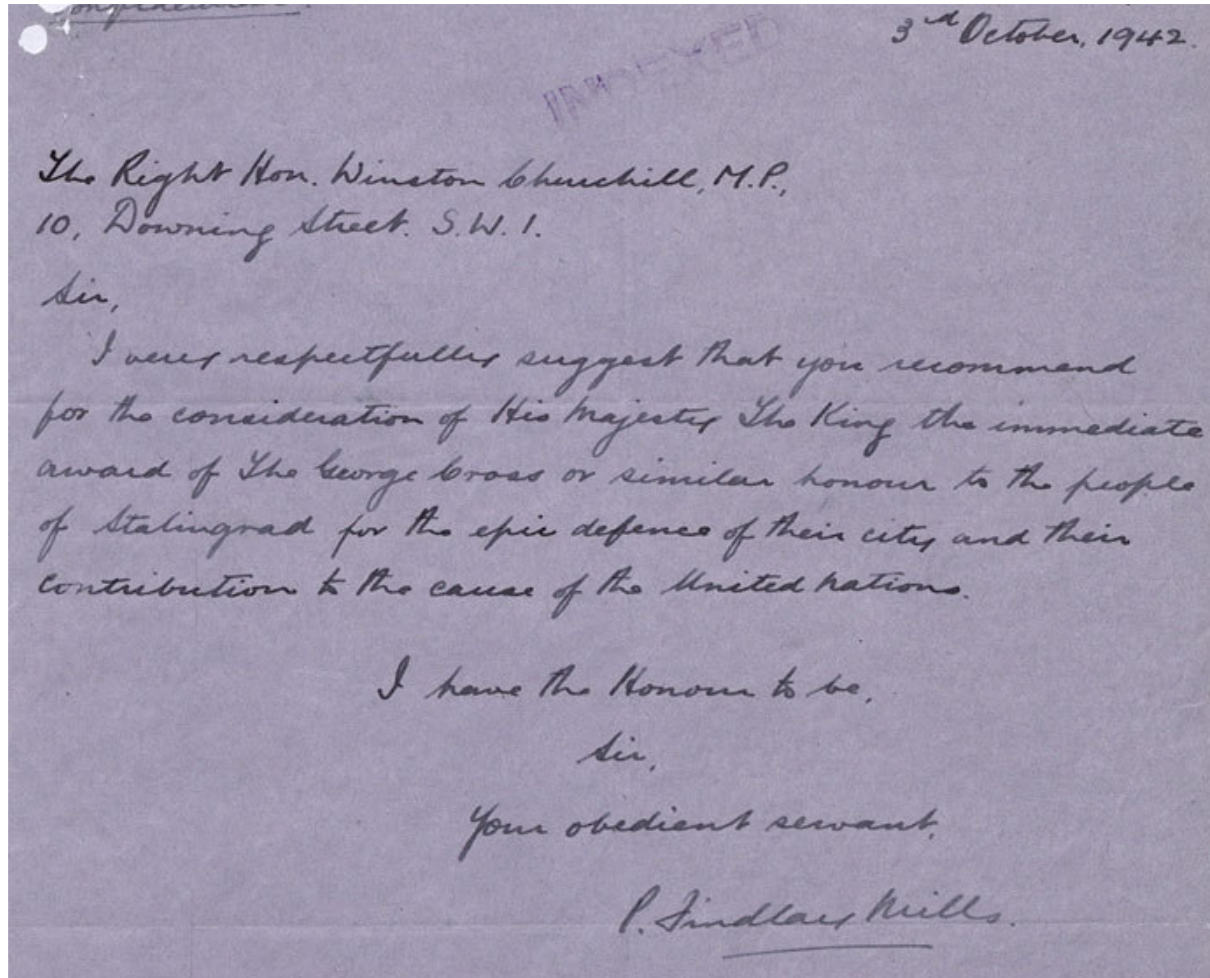 Confidential.
3rd October, 1942.
INDEXED
The Right Hon. Winston Churchill, M.P.,
10, Downing Street. S.W.1.
Sir,
I very respectfully suggest that you recommend
for the consideration of His Majesty The King the immediate
award of The George Cross or similar honour to the people
of Stalingrad for the epic defence of their city and their
contribution to the cause of the United Nations.
I have the Honour to be,
Sir,
Your obedient servant,
P. Findlay Mills.